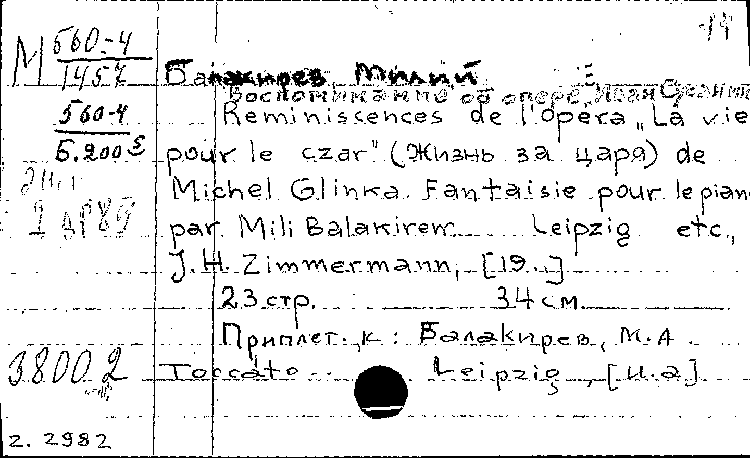 -14
М 560-4
1457
Балакирев, Милий
Воспоминание об опере "Иван Сусанин
560-4
Б.200
Reminissences de l'opéra „La vie
pour le czar" (Жизнь за царя) de
Michel Glinka. Fantaisie pour le pian
par Mili Balakirew. Leipzig etc.,
J.H. Zimmermann, [19..]
23 стр. 34 см
Приплет. к: Балакирев, М.А.
38002
Toccato.. Leipzig, [u.a]
2.2982